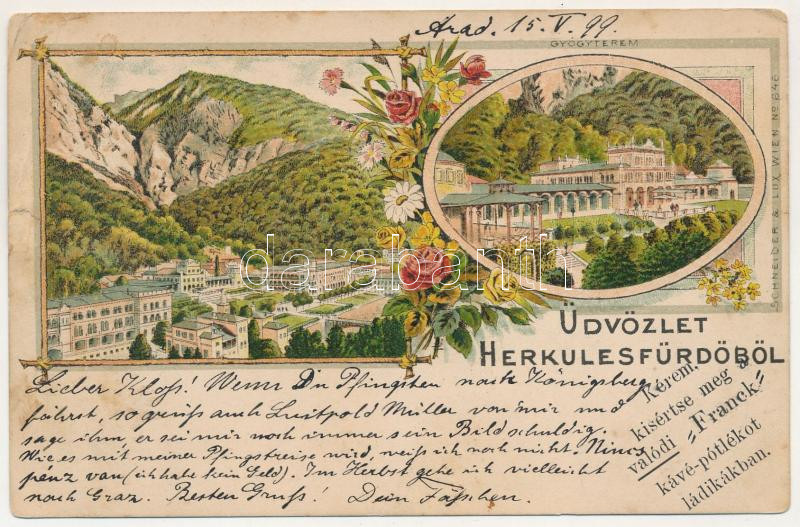 Arad. 15. V. 99.
GYÓGYTEREM
SCHNEIDER & LUX, WIEN No 646
darabanth
ÜDVÖZLET
HERKULESFÜRDŐBŐL
Lieber Kloss! Wenn Du Pfingsten nach Königsberg
fährst, so grüss auch Luitpold Müller von mir und
sage ihm, er sei mir noch immer sein Bild schuldig.
Wie es mit meiner Pfingstreise wird, weiss ich noch nicht. Nincs
pénz van (ich habe kein Geld). Im Herbst gehe ich vielleicht
nach Graz. Besten Gruss! Dein
Kérem,
kisértse meg a
valódi „Franck"
kávé-pótlékot
ládikákban.